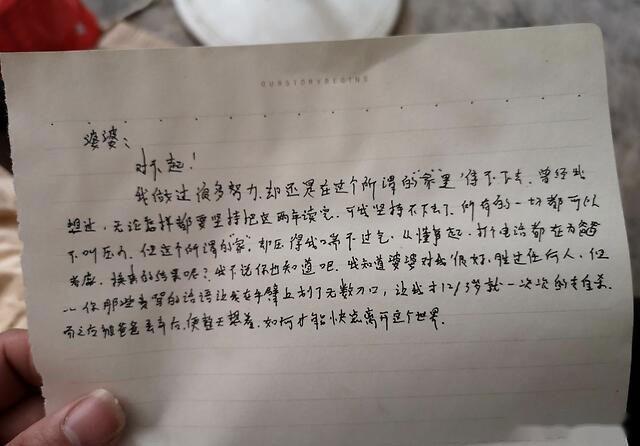 OURSTORYBEGINS
婆婆:
对不起!
我做过很多努力,却还是在这个所谓的"家"里待不下去,曾经我
想过,无论怎样都要坚持把这两年读完,可我坚持不下去了,所有的一切都可以
不叫压力,但这个所谓的"家"却压得我喘不过气。从懂事起,打个电话都在为
考虑,换来的结果呢?我不说你也知道吧,我知道婆婆对我很好,胜过任何人,但
你那些责骂的话语让我在手臂上划了无数刀口,让我才12/3岁就一次次的去自杀.
而之后被爸爸丢弃后,便整天想着,如何才能快点离开这个世界.